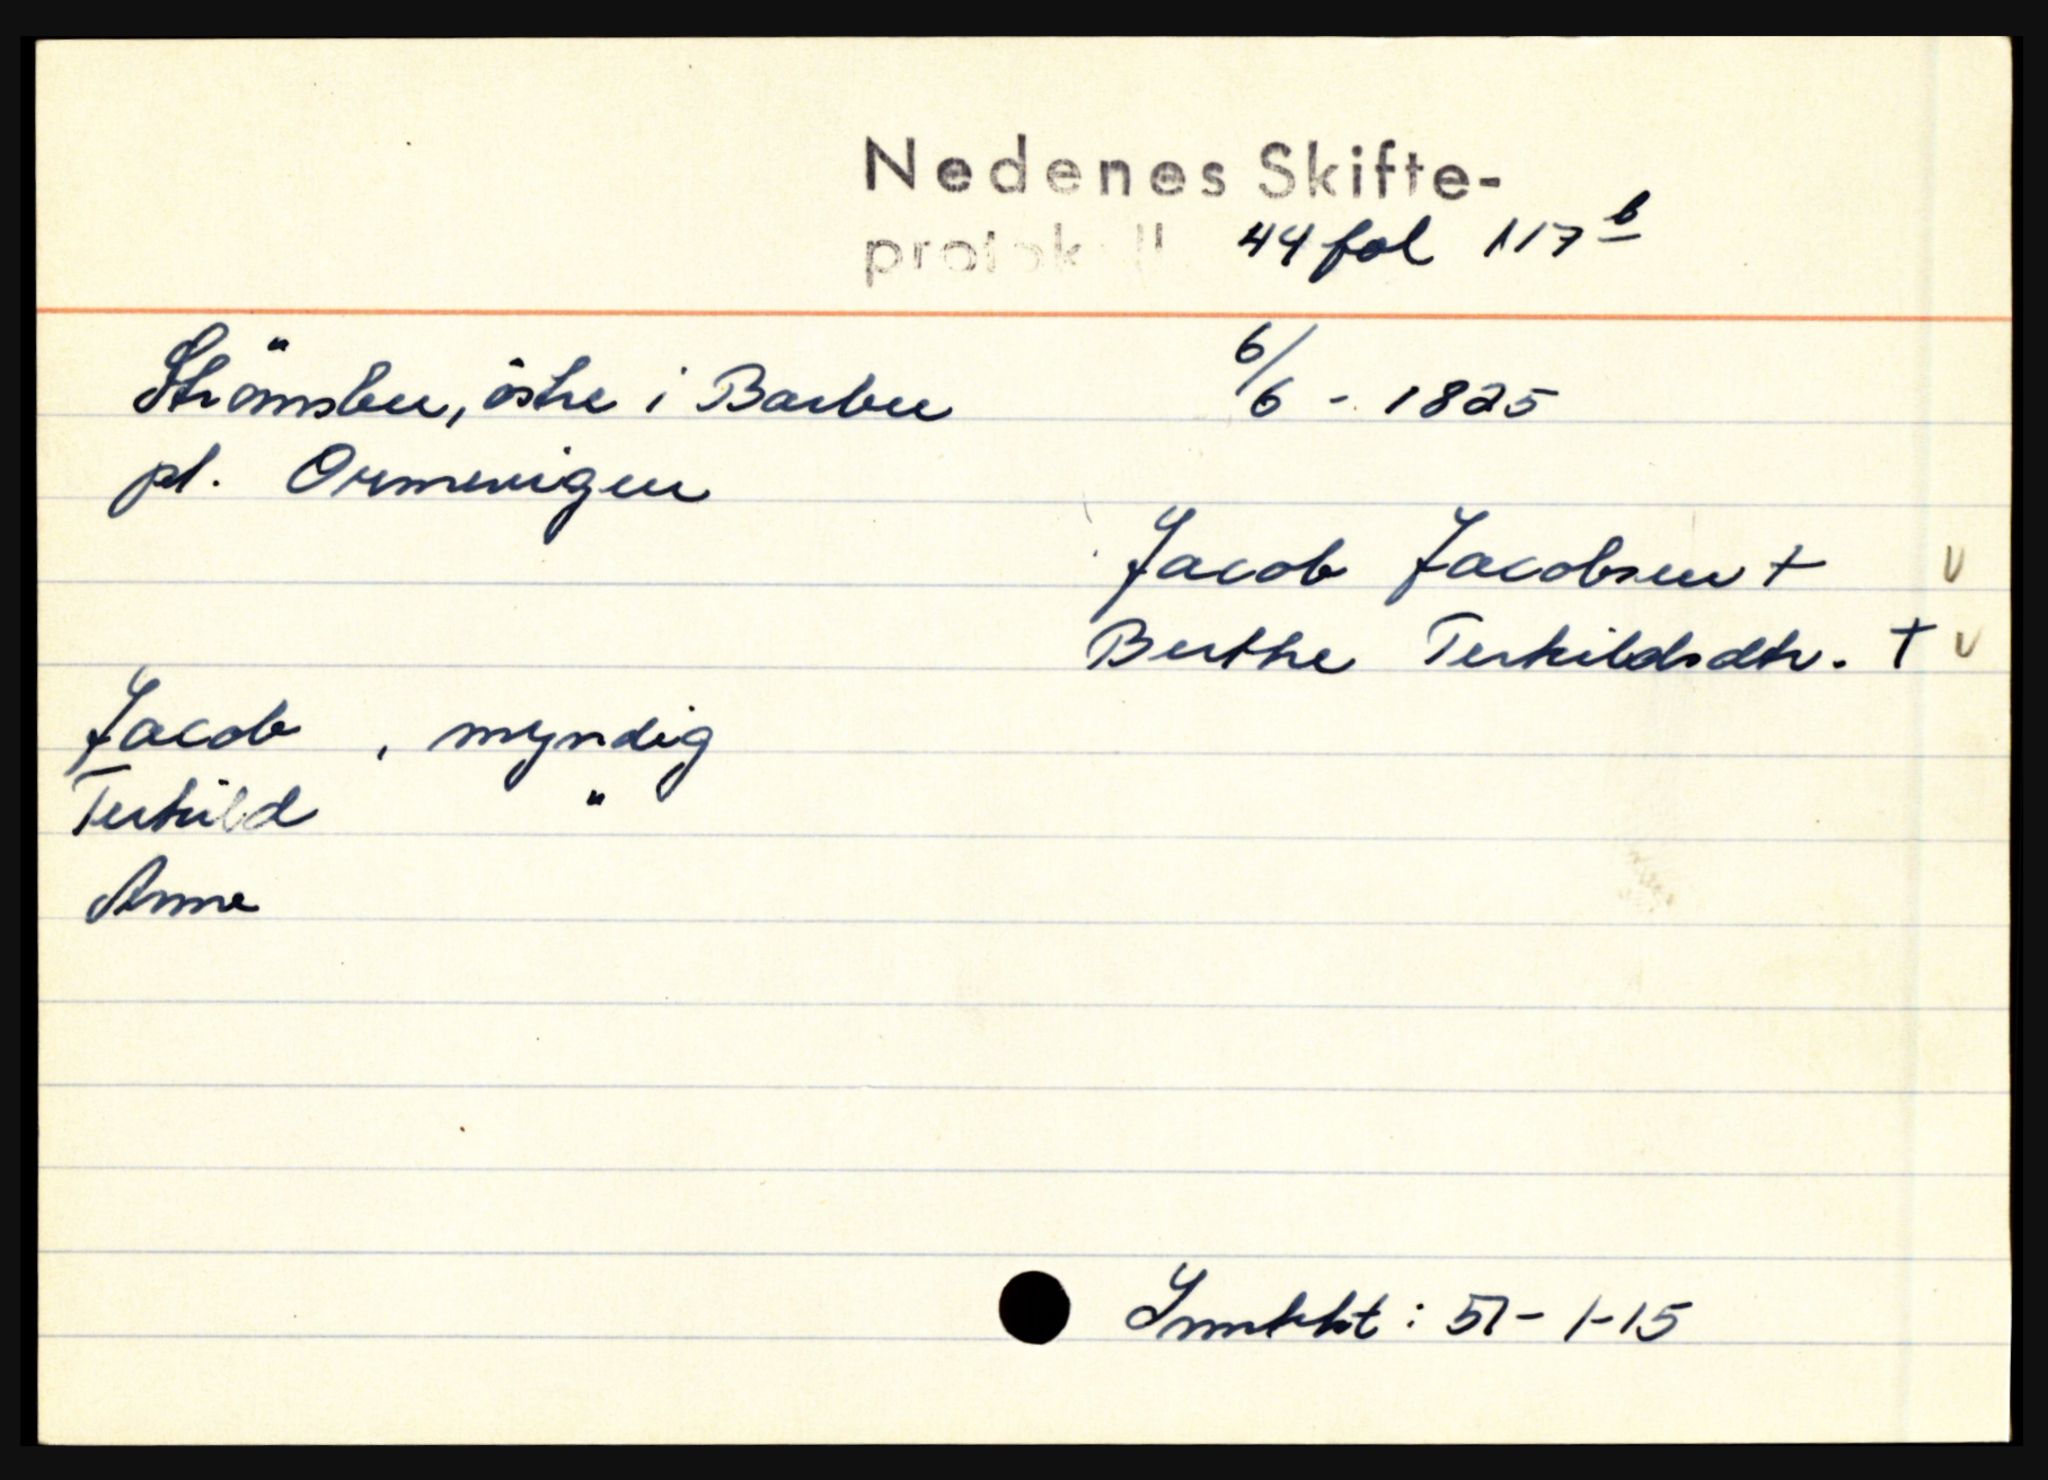 Nedenes Skifte-
protokoll 44 fol 117 b
Strömsbu, östre i Barbu 6/6 - 1825
pl. Ormevigen
Jacob Jacobsen + v
Berthe Terkildsdtr. + v
Jacob , myndig
Terkild "
Anne
Innthkt : 57 - 1 - 15